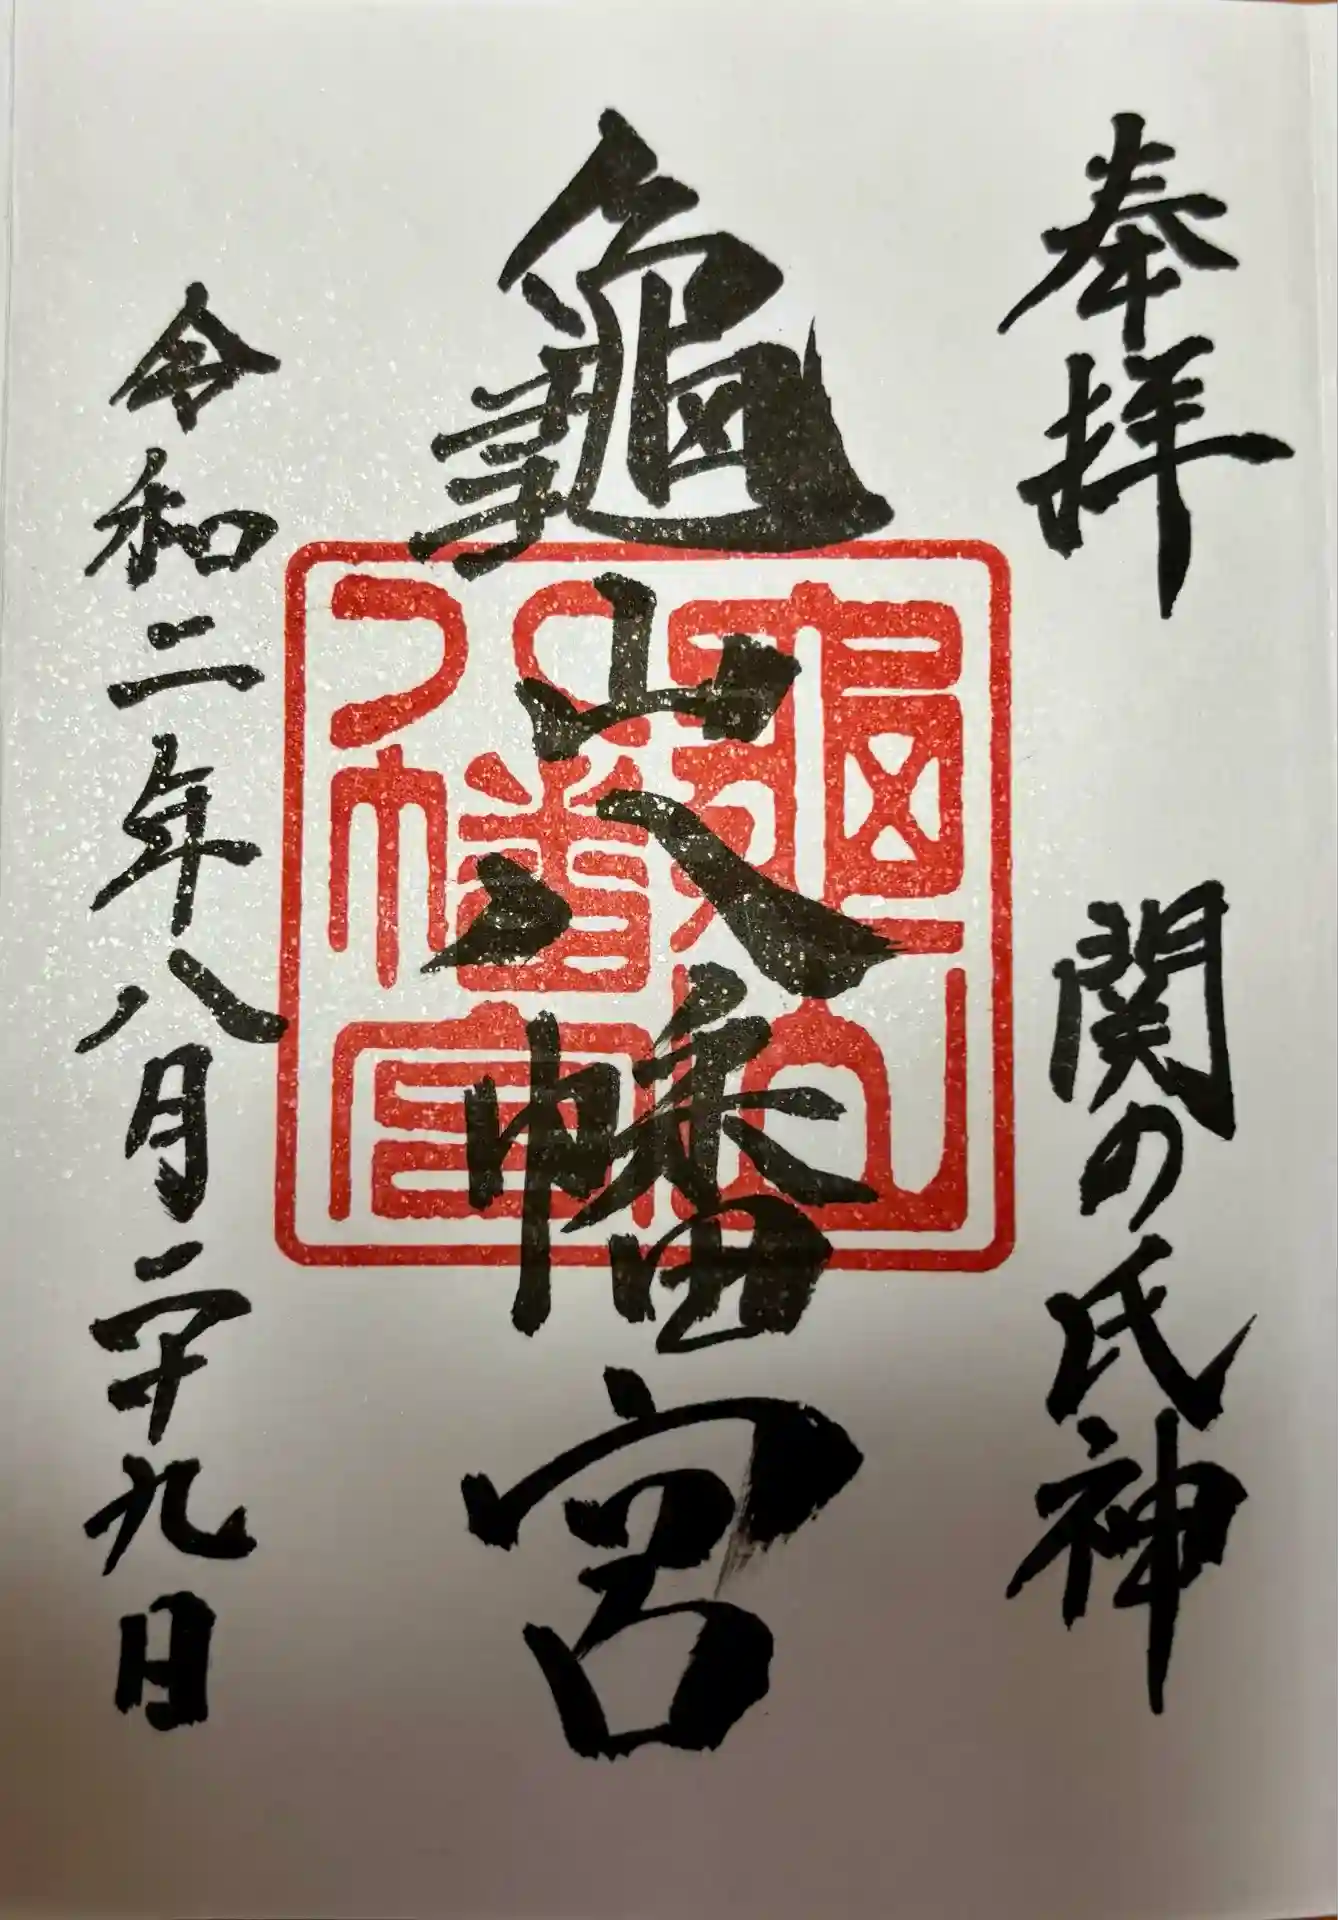 奉拝　関の氏神
龜山八幡宮
龜山
八幡宮
令和二年八月二十九日